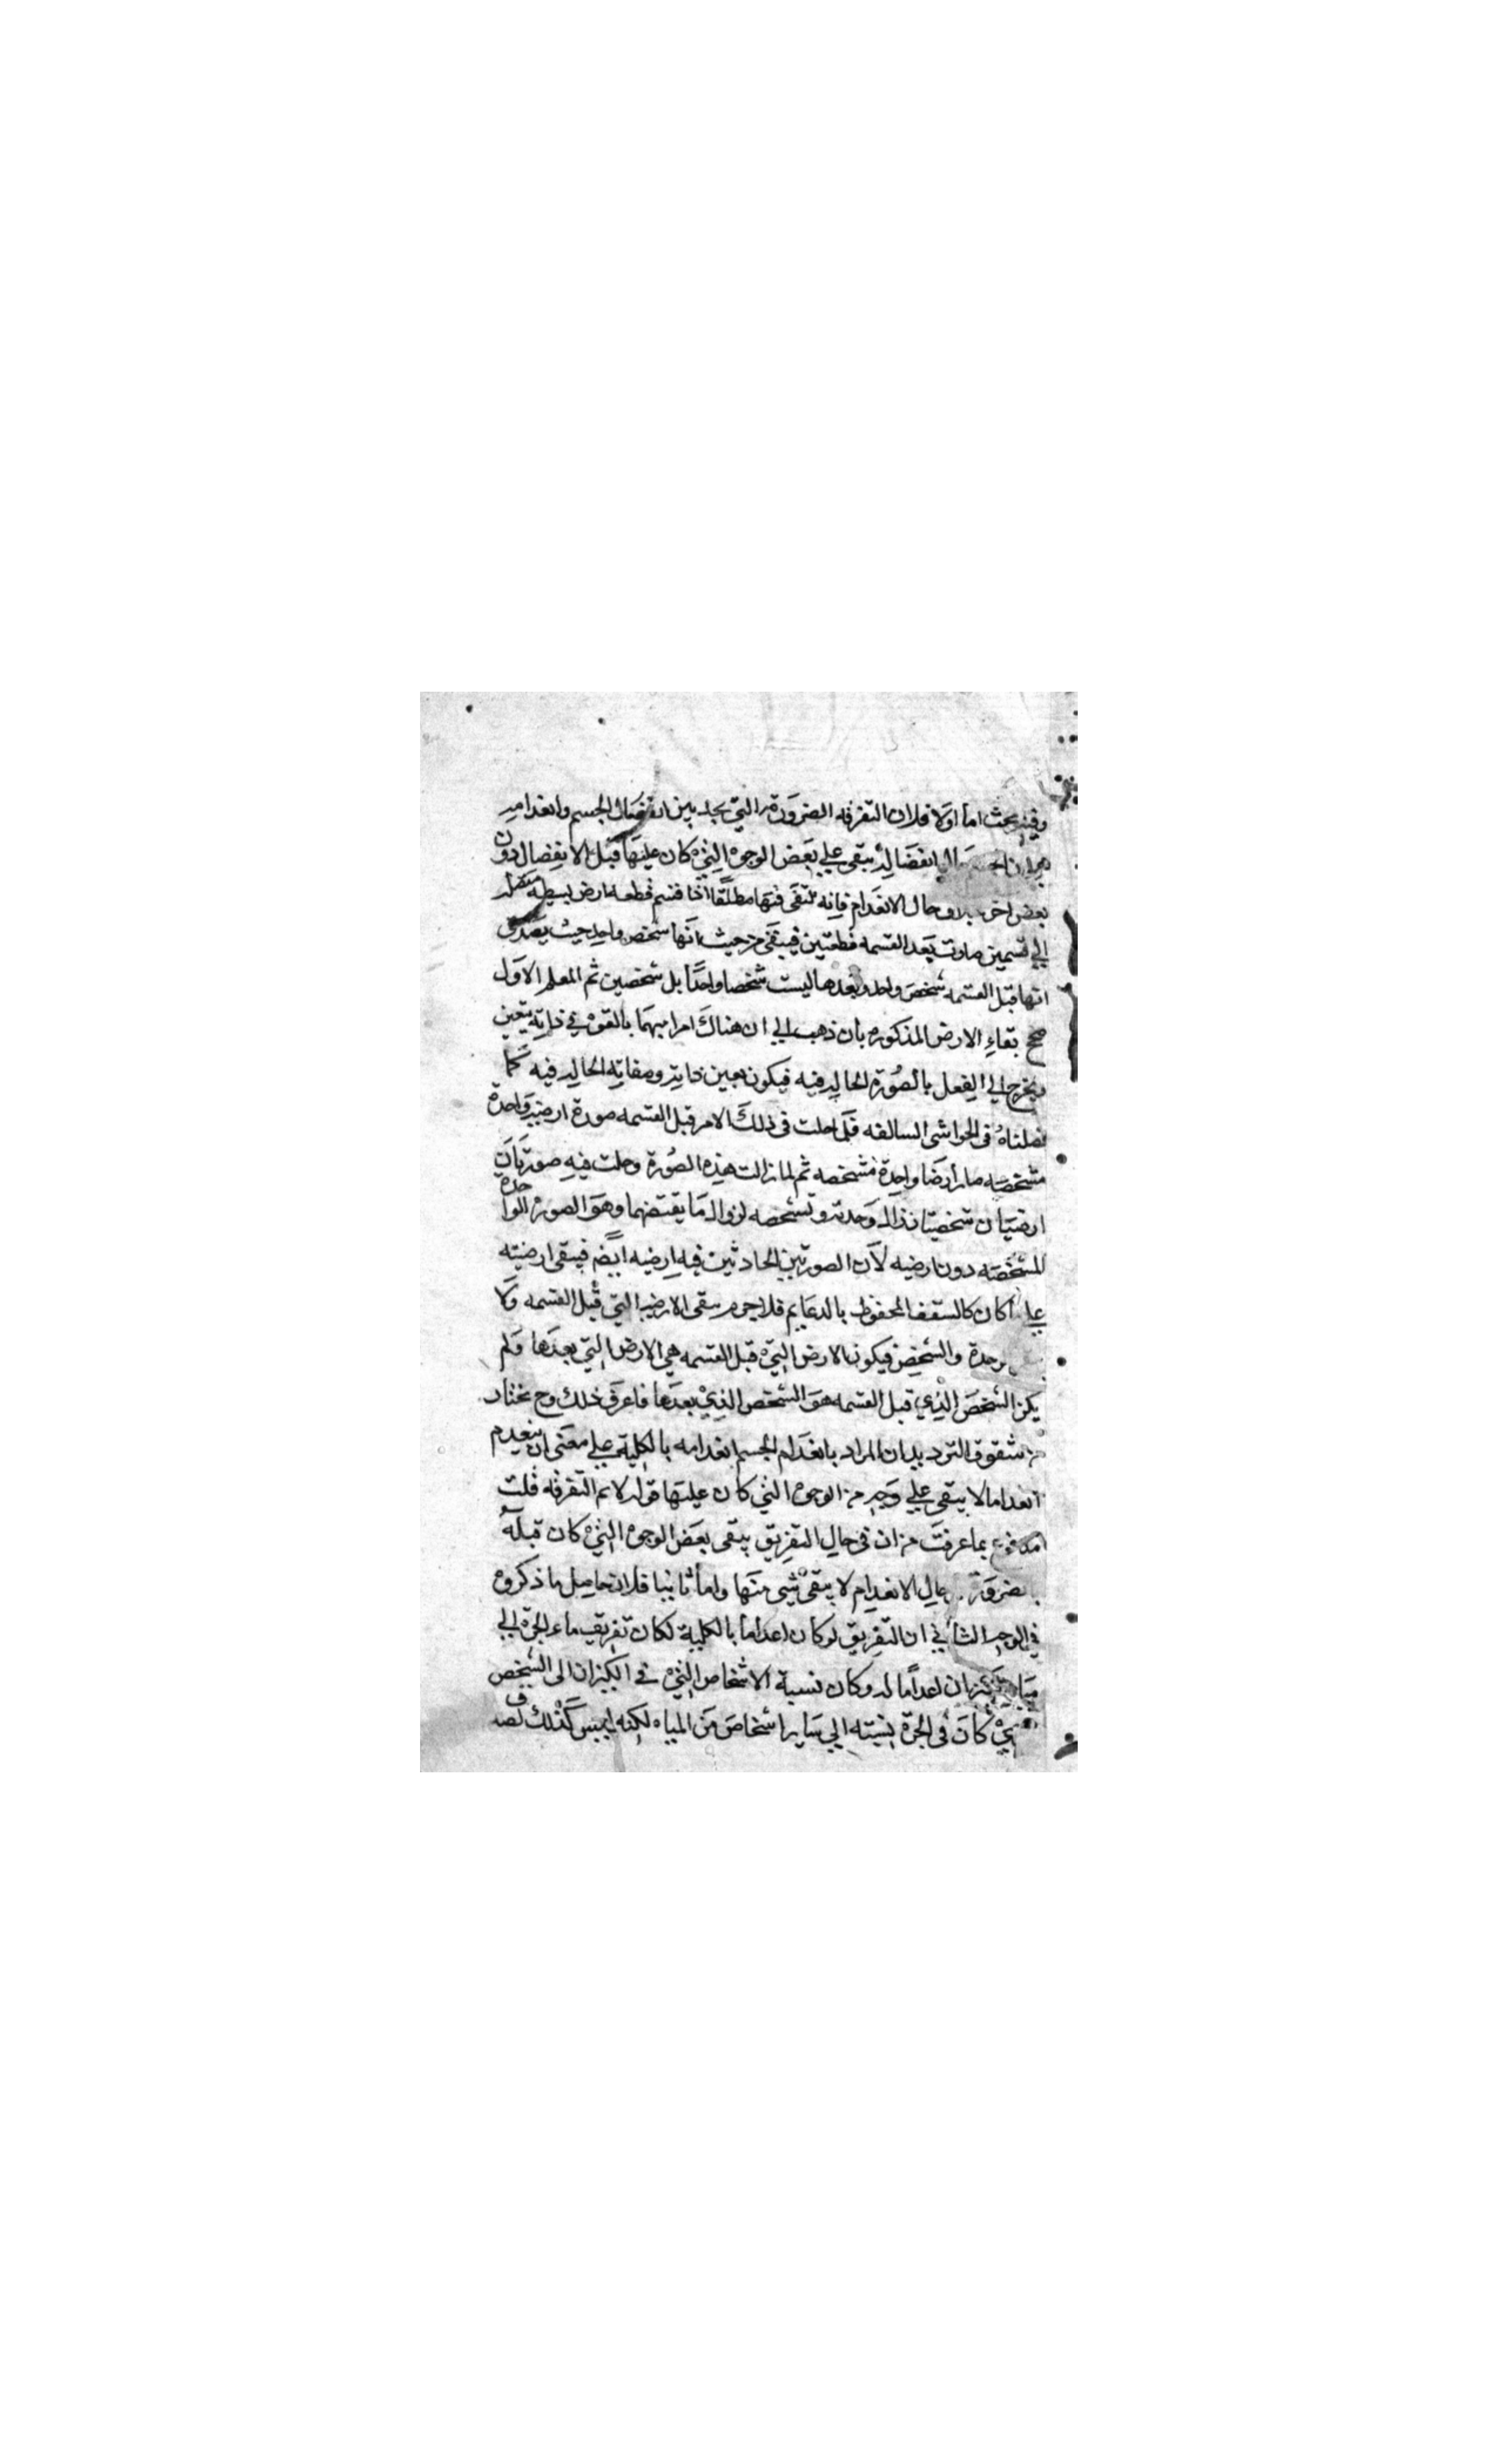 وفيه بحث اما اولا فلان التفرقه الضرورة التي يجد بين انفصال الجسم وانعدامه
انفصاله يبقى علي بعض الوجوه التي كان عليها قبل الانفصال دون
بعض اخر بخلاف حال الانعدام فانه ينتفى فيها مطلقا اذا قسم قطعه ارض بسيطه متصله
الي قسمين صارت بعد القسمه قطعتين فيبقى من حيث انها شخص واحد حيث يصدق
انها قبل القسمه شخص واحد وبعدها ليست شخصا واحدا بل شخصين ثم المعلم الاول
صحح بقاء الارض المذكوره بان ذهب الي ان هناك امرا مبهما بالقوه في ذاته يتعين
ويخرج الي الفعل بالصورة الحاله فيه فيكون بعين ذاته وصفاته الحاله فيه كما
فصلناه في الحواشى السالفه فلما حلت فى ذلك الامر قبل القسمه صورة ارضيه واحدة
مشخصه صار أرضا واحدة مشخصه ثم لما زالت هذه الصورة وحلت فيه صورتان
ارضيان شخصيتان زال وحدته وتشخصه لزوال ما يقتضهما وهو الصوره الواحدة
المشخصه دون ارضيه لان الصورتين الحادثين فيه ارضيه ايضم فيبقى ارضيته
علي ما كان كالسقف المحفوظ بالدعايم فلا جرم يبقى الارضيه التي قبل القسمه ولا
وحدة والشخص فيكون الارض التي قبل القسمه هي الارض التي بعدها ولم
يكن الشخص الذي قبل القسمه هو الشخص الذي بعدها فاعرف ذلك وح نختار
من شقوق الترديد ان المراد بانعدام الجسم انعدامه بالكلية علي معنى ان ينعدم
انعداما لا يبقى علي وجه من الوجوه التي كان عليها قوله لا تم التفرقه قلت
مدفوع بما عرفت من ان في حال التفريق يبقى بعض الوجوه التي كان قبله
بالضرورة حال الانعدام لا يبقى شيى منها واما ثانيا فلان حاصل ما ذكروه
في الوجه الثاني ان التفريق لو كان اعداما بالكلية لكان تفريق ماء الجرة الي
كيزان اعداما له وكان نسبة الاشخاص التي في الكيزان الى الشخص
الذي كان في الجرة بنسبته الي ساير اشخاص من المياه لكنه ليس كذلك